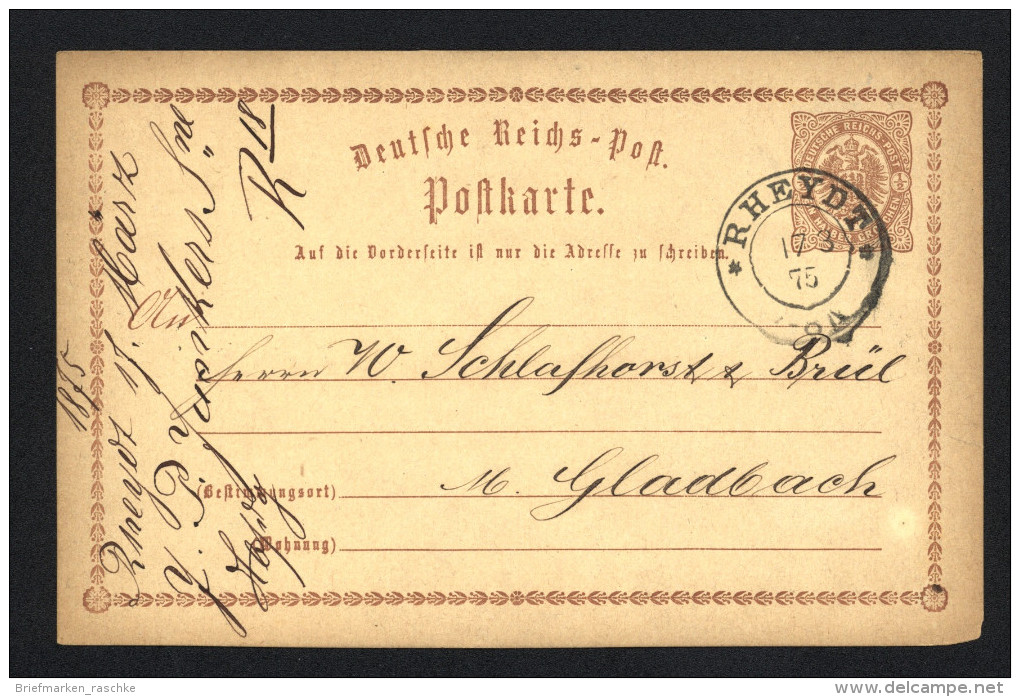 Deutsche Reichs-Post.
Postkarte.
Auf die Vorderseite ist nur die Adresse zu schreiben.
DEUTSCHE REICHS-POST
1/2
RHEYDT
17 3
75
An
Herrn W. Schlafhorst & Brül
(Bestimmungsort)
M. Gladbach
(Wohnung)
Rheydt 17. März
1875
R 18
Briefmarken_raschke
www.delcampe.net